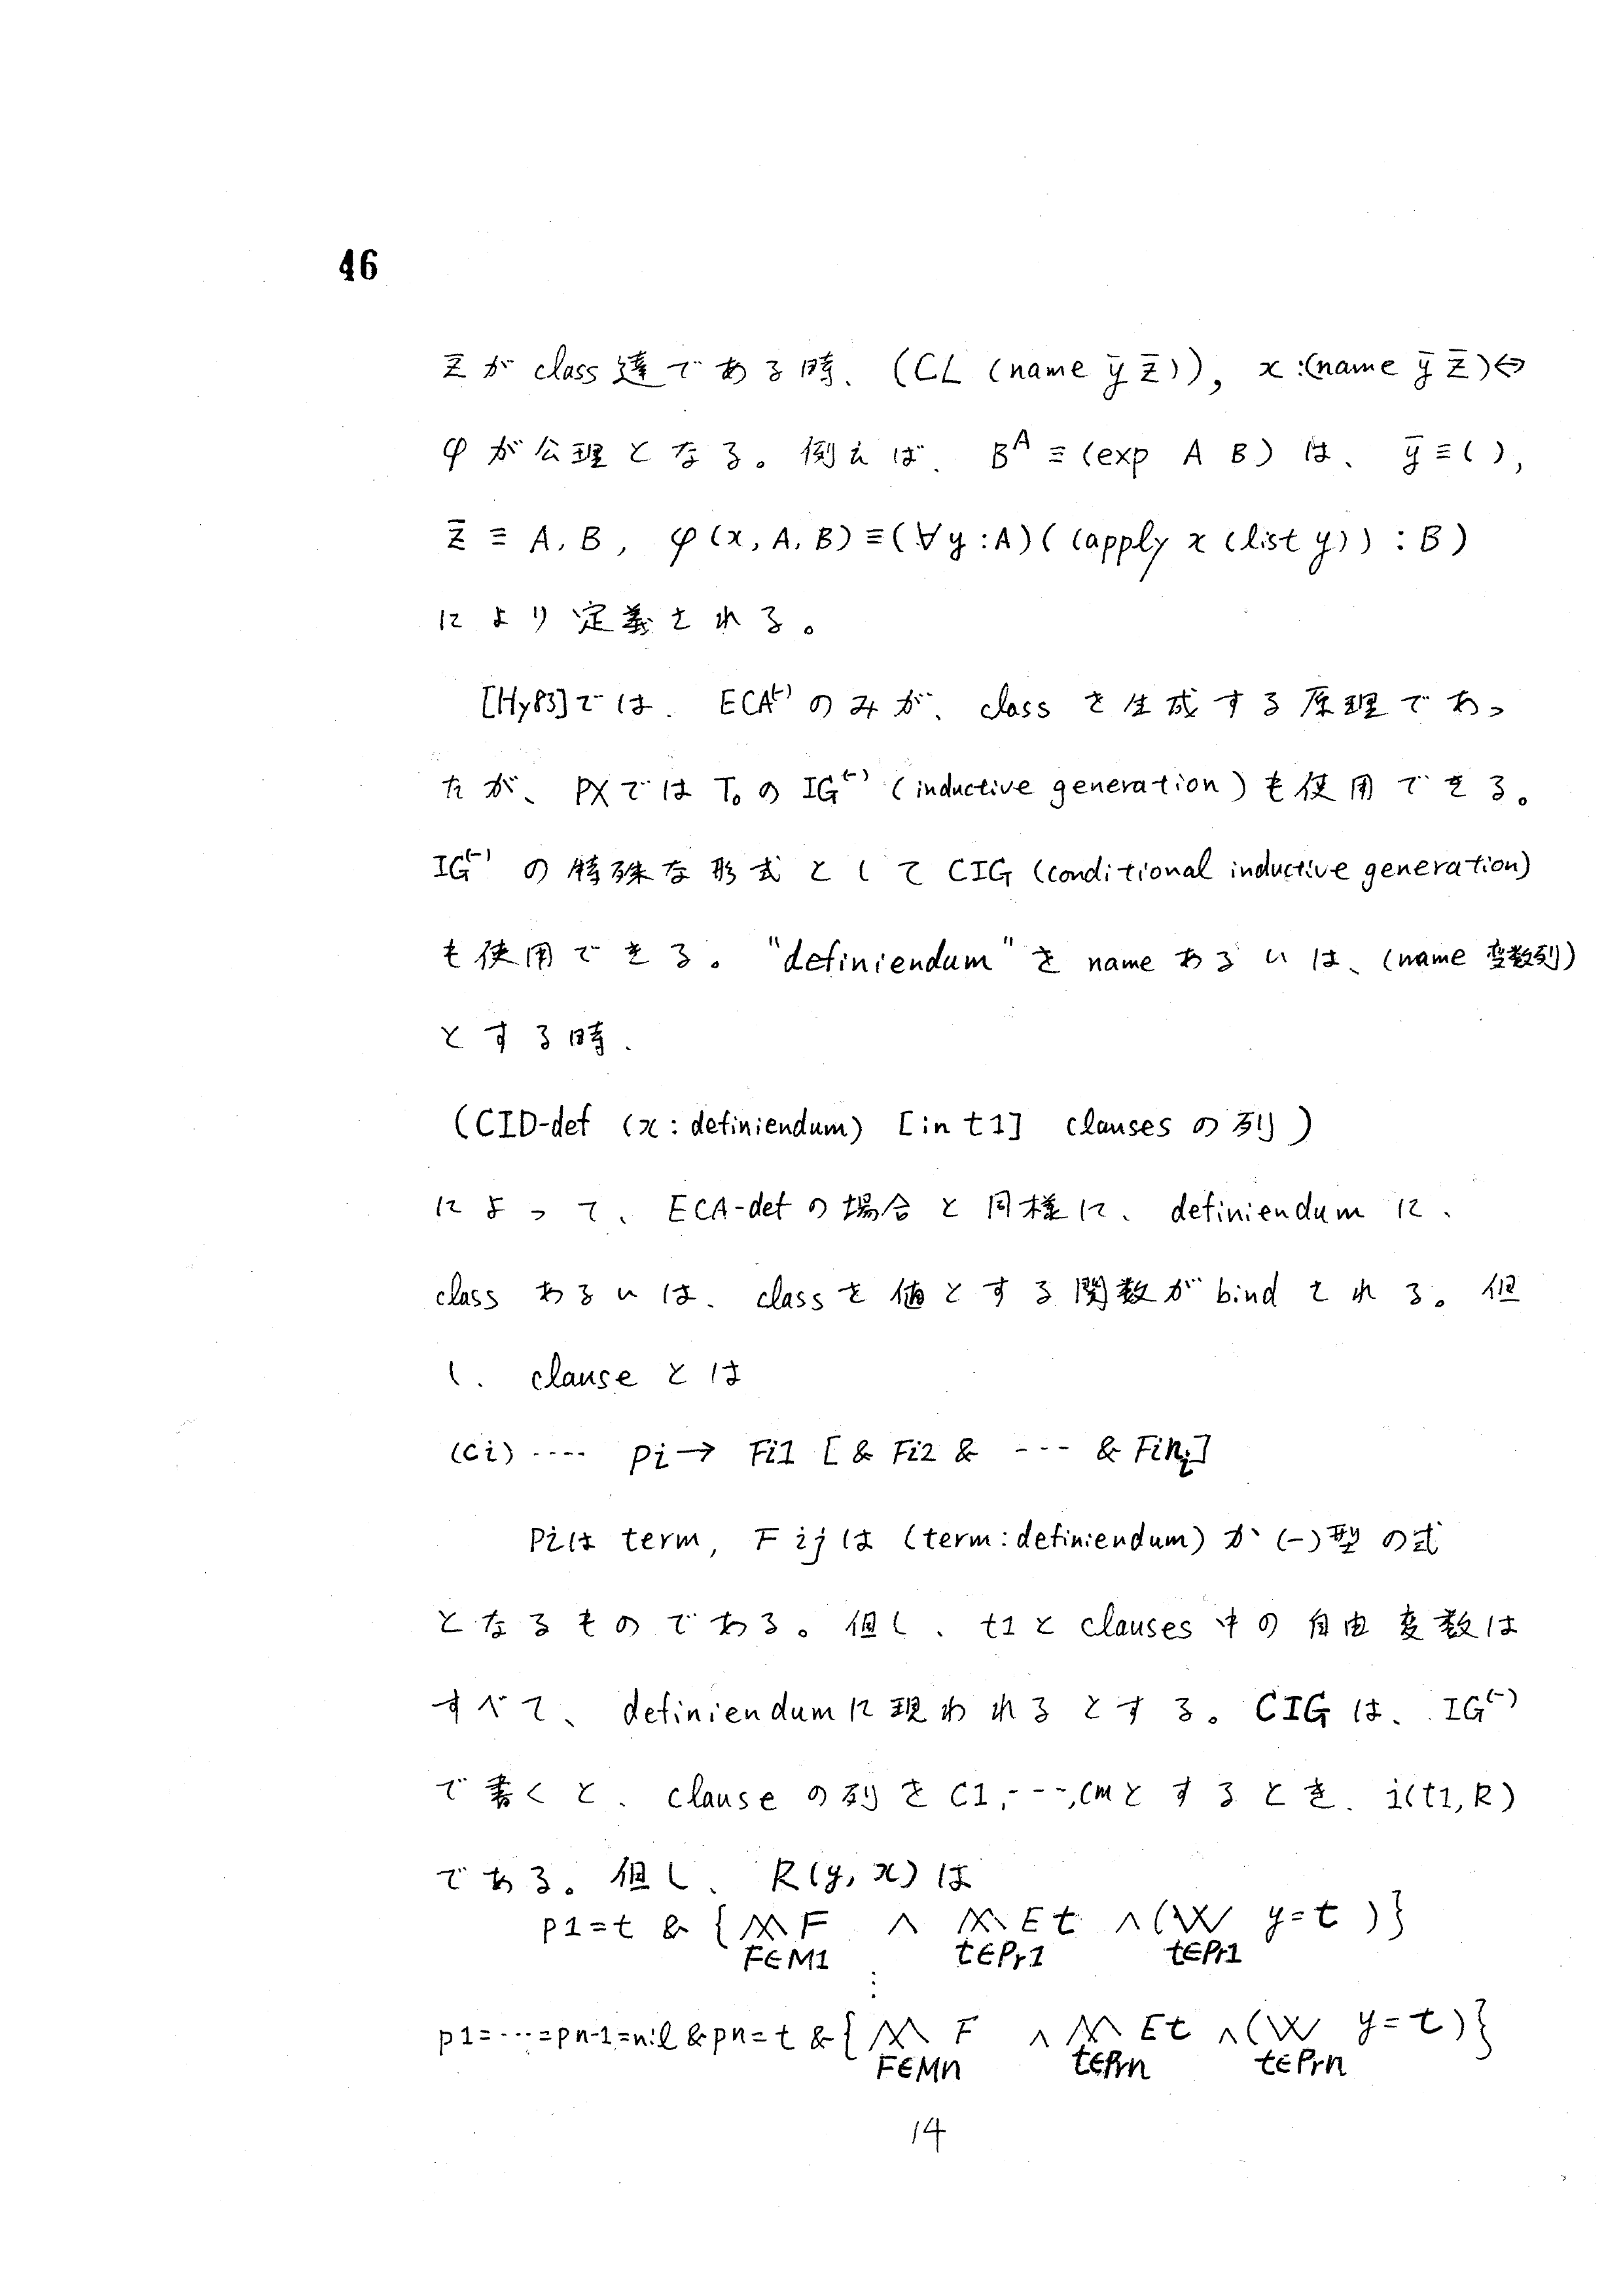 46
z̄がclass達である時、(CL (name ȳ z̄)), x:(name ȳ z̄)⇔
φが公理となる。例えば、B^A≡(exp A B)は、ȳ≡(),
z̄≡A,B, φ(x,A,B)≡(∀y:A)((apply x (list y)):B)
により定義される。
[Hy83]では、ECA^(-)のみが、classを生成する原理であっ
たが、PXではT₀のIG^(-)(inductive generation)も使用できる。
IG^(-)の特殊な形式としてCIG (conditional inductive generation)
も使用できる。"definiendum"をnameあるいは、(name 変数列)
とする時、
(CID-def (x:definiendum) [in t1] clausesの列)
によって、ECA-defの場合と同様に、definiendumに、
classあるいは、classを値とする関数がbindされる。但
し、clauseとは
(Ci)···· pi→ Fi1 [& Fi2 & --- & Fin_i]
Piはterm, Fijは(term:definiendum)か(-)型の式
となるものである。但し、t1とclauses中の自由変数は
すべて、definiendumに現われるとする。CIGは、IG^(-)
で書くと、clauseの列をC1,---,Cmとするとき、i(t1,R)
である。但し、R(y,x)は
p1=t & {⋀⋀ F ∧ ⋀⋀ Et ∧(⋁⋁ y=t)}
F∈M1 t∈Pr1 t∈Pr1
⋮
p1=···=pn-1=nil & pn=t & {⋀⋀ F ∧ ⋀⋀ Et ∧(⋁⋁ y=t)}
F∈Mn t∈Prn t∈Prn
14